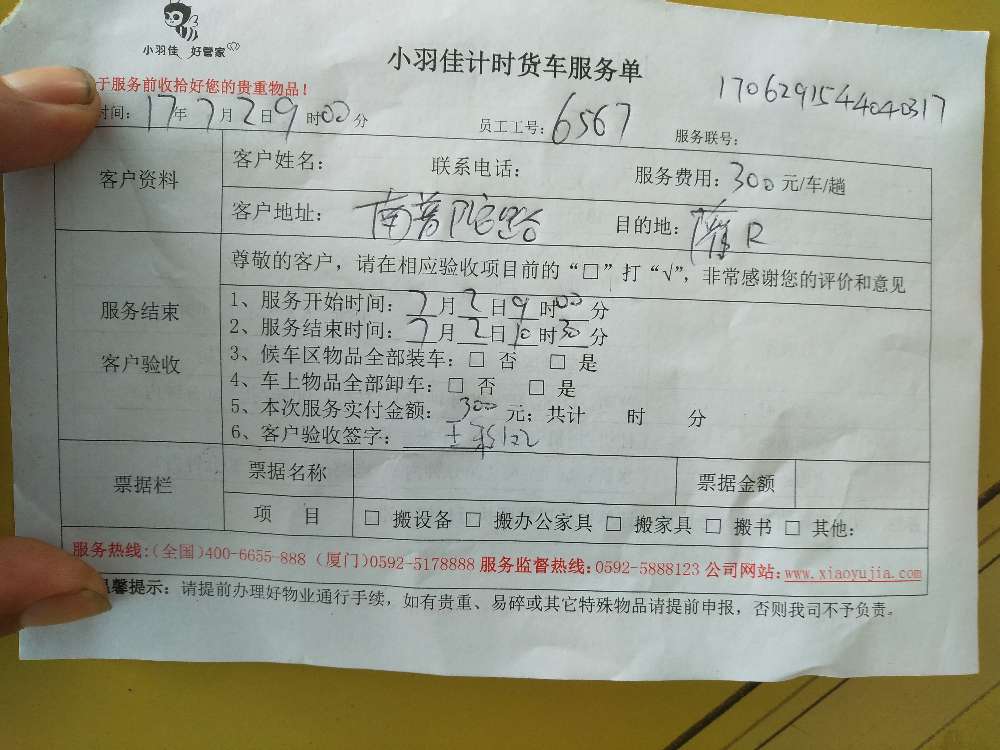 小羽佳 好管家
小羽佳计时货车服务单
于服务前收拾好您的贵重物品！
1706291544040317
时间：17年7月2日9时00分 员工工号：6567 服务联号：
客户资料
客户姓名： 联系电话： 服务费用：300元/车/趟
客户地址：南普陀 目的地：
尊敬的客户，请在相应验收项目前的“□”打“√”，非常感谢您的评价和意见
服务结束
客户验收
1、服务开始时间：7月2日9时00分
2、服务结束时间：7月2日10时30分
3、候车区物品全部装车：□ 否 □ 是
4、车上物品全部卸车：□ 否 □ 是
5、本次服务实付金额：300元；共计 时 分
6、客户验收签字：王
票据栏
票据名称 票据金额
项 目 □ 搬设备 □ 搬办公家具 □ 搬家具 □ 搬书 □ 其他：
服务热线:(全国)400-6655-888 (厦门)0592-5178888 服务监督热线:0592-5888123 公司网站:www.xiaoyujia.com
温馨提示：请提前办理好物业通行手续，如有贵重、易碎或其它特殊物品请提前申报，否则我司不予负责。